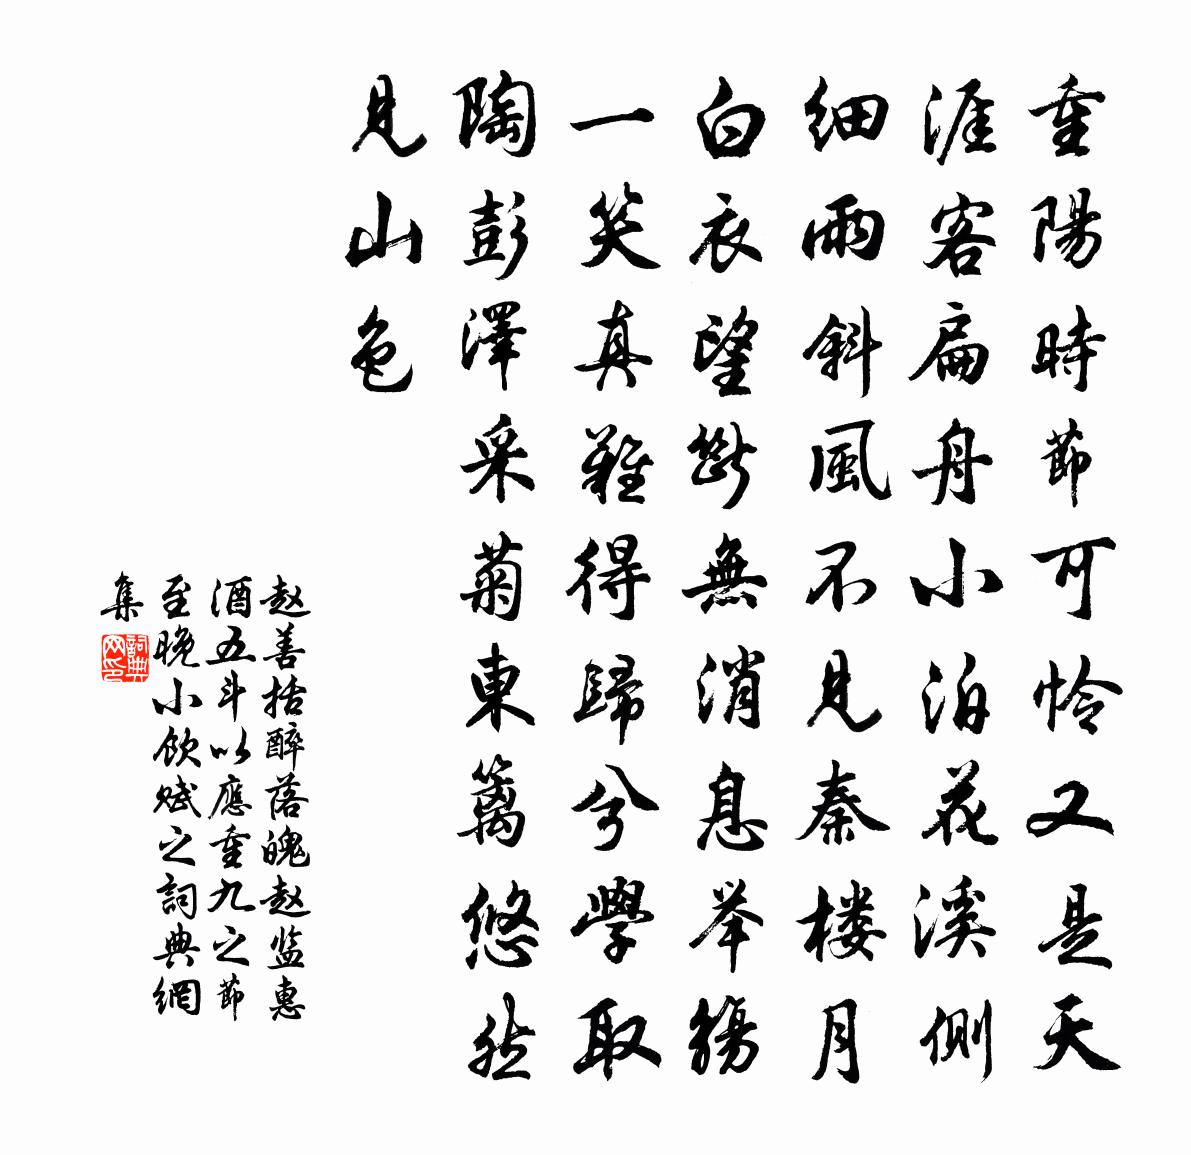 重陽時節可怜又是天
涯客扁舟小泊花溪側
細雨斜風不見秦楼月
白衣望斷無消息举觴
一笑真難得歸兮學取
陶彭澤采菊東籬悠然
見山色
赵善括醉落魄赵监惠
酒五斗以應重九之節
至晚小飲赋之詞典網
集
詞典
网印